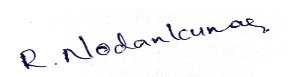 R. Nodankumar